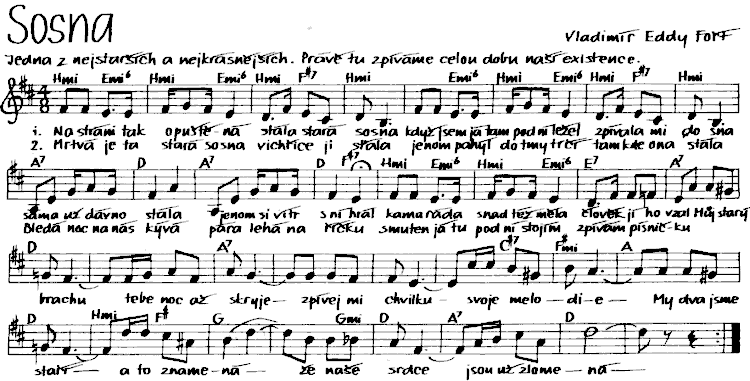 Sosna
Vladimír Eddy Fort
Jedna z nejstarších a nejkrásnějších. Právě tu zpíváme celou dobu naší existence.
Hmi Emi6 Hmi Emi6 Hmi F#7 Hmi Emi6 Hmi Emi6 Hmi F#7 Hmi
4 8
1. Na stráni tak opuště-ná stála stará sosna když jsem já tam pod ní ležel zpívala mi do sna
2. Mrtvá je ta stará sosna vichřice ji sťala jenom pahýl do tmy trčí tam kde ona stála
A7 D A7 D F#7 Hmi Emi6 Hmi Emi6 E7 A7
sama už dávno stála jenom si vítr s ní hrál kamaráda snad též měla člověk jí ho vzal Můj starý
Bledá noc na nás kývá pára lehá na říčku smuten já tu pod ní stojím zpívám písnič-ku
D A7 D C#7 F#mi A
bráchu tebe noc až skryje- zpívej mi chvilku- svoje melo-die- My dva jsme
D Hmi F# G Gmi D A7 D D
staří- a to zname-ná- že naše srdce jsou už zlome-ná-